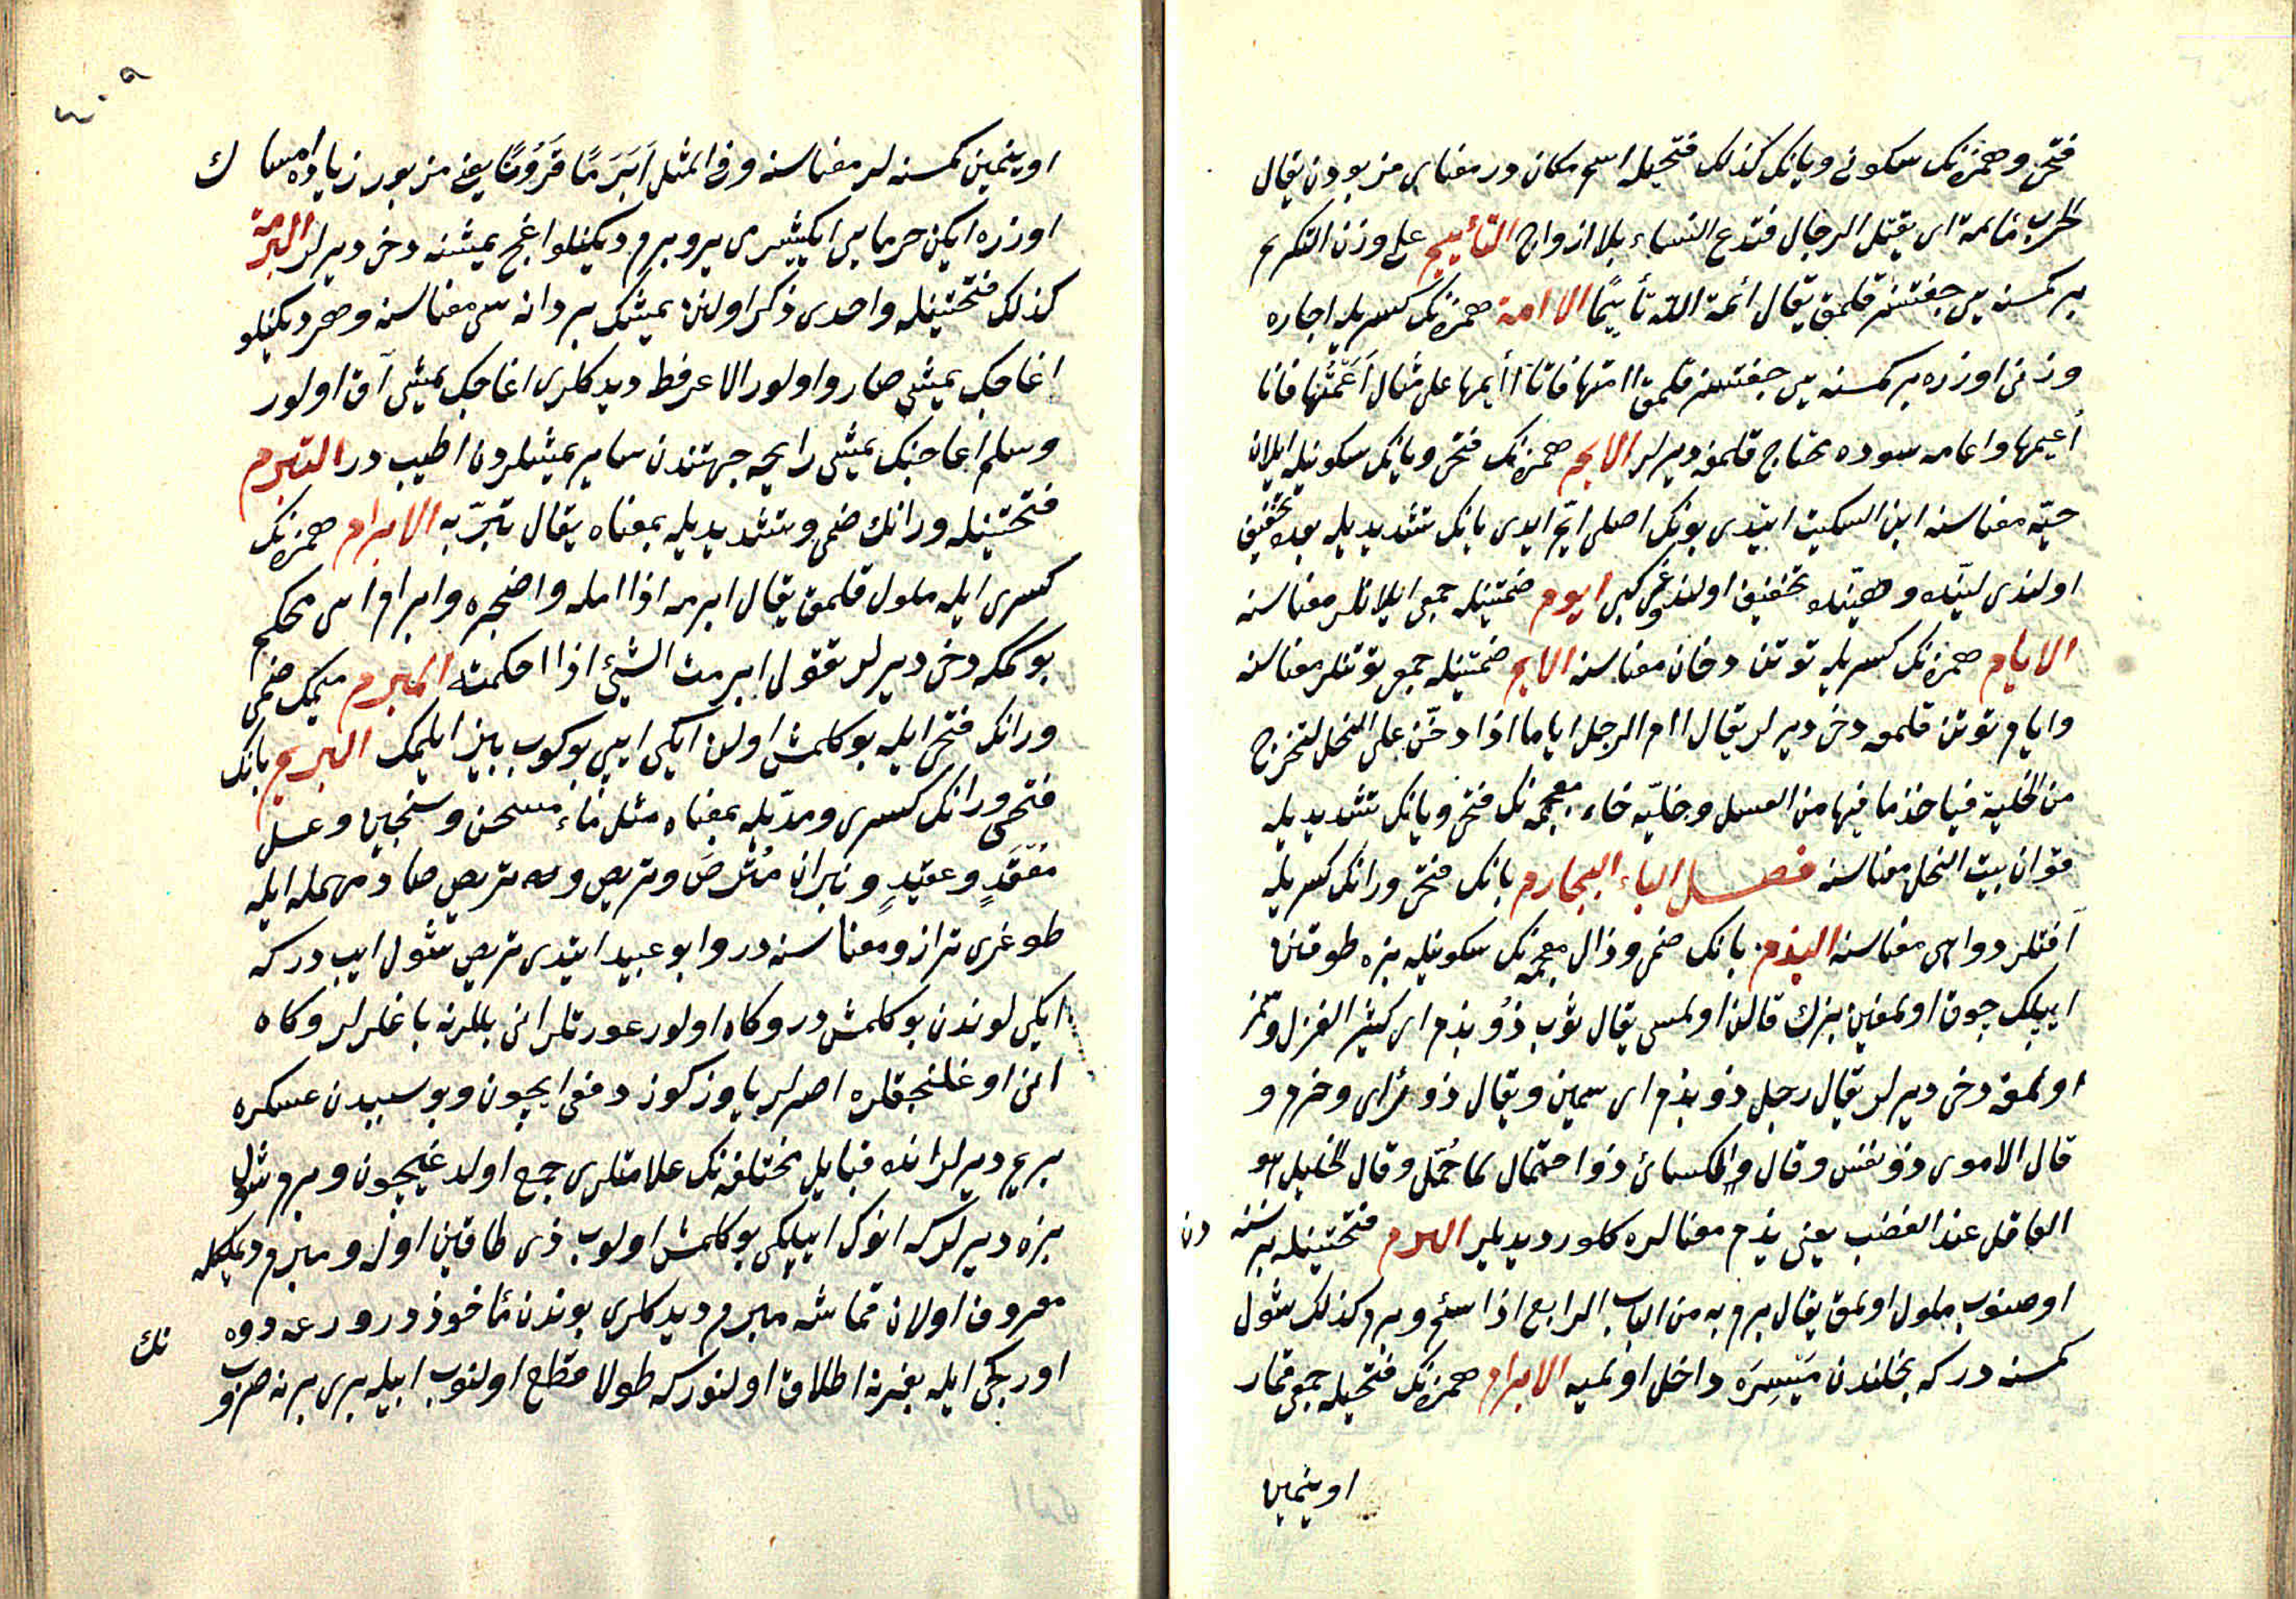 فتحى وهمزنك سكونى ويانك كذلك فتحيله اسم مكان در معناى مزبوردن يقال
الحرب مأيمة اى يقتل الرجال فتدع النساء بلا ازواج التأييم على وزن التكريم
بر كمسنه يى جفتسز قلمق يقال أئمه الله تأييمًا الاامة همزنك كسريله اجاره
وزنى اوزره بر كمسنه يى جفتسز قلمق اامتها فانا اأيمها على مثال أعمتها فانا
أعيمها واعامه سوده محتاج قلمغه ديرلر الايم همزنك فتحى ويانك سكونيله ايلان
حيّه معناسنه ابن السكيت ايتدى بونك اصلى ايّم ايدى يانك تشديديله بعده تخفيف
اولندى ليّنده وهيّنده تخفيف اولندوغى كبى ايوم ضمتينله جمعى ايلانلر معناسنه
الايام همزنك كسريله توتن دخان معناسنه الايم ضمتينله جمعى توتنلر معناسنه
وايام توتن قلمغه دخى ديرلر يقال اام الرجل اياما اذا دخّن على النحل لتخرج
من الخلية فياخذ ما فيها من العسل وخليّه خاء معجمه نك فتحى ويانك تشديديله
قوان بيت النحل معناسنه فصل الباء البجارم بانك فتحى ورانك كسريله
آفتلر دواهى معناسنه البذم بانك ضمى وذال معجمه نك سكونيله بزه طوقنن
ايپلك چوق اولمغين بزك قالن اولمسى يقال ثوب ذو بذم اى كثير الغزل وسمز
اولمغه دخى ديرلر يقال رجل ذو بذم اى سمين ويقال ذو رأى وحزم و
قال الاموى ذو نفس وقال الكسائى ذو احتمال لما حُمّل وقال الخليل هو
العاقل عند الغضب يعنى بذم معنالره كلور ديديلر البرم فتحتينله بر نسنه دن
اوصنوب ملول اولمق يقال برم به من الباب الرابع اذا سئم وبرم كذلك شول
كمسنه دركه بخلندن مَيْسِرَه داخل اولميه الابرام همزنك فتحيله جمعى قمار
اوينمين
٤٠٩
اوينمين كمسنه لر معناسنه وفى المثل اَبَرَمًا قَرُونًا يعنى مزبور زياده امساك
اوزره ايكن خرمايى ايكيشر ايكيشر يرو برم ديكنلو اغج يمشنه دخى ديرلر البرمة
كذلك فتحتينله واحدى ذكر اولنن يمشك بر دانه سى معناسنه وهر ديكنلو
اغاجك يمشى صارو اولور الا عرفط ديدكلرى اغاجك يمشى آق اولور
وسلم اغاجنك يمشى رايحه جهتندن ساير يمشلردن اطيب در التبرم
فتحتينله ورانك ضمى وتشديديله بمعناه يقال تبرّم به الابرام همزنك
كسرى ايله ملول قلمق يقال ابرمه اذا امله واضجره وابرام ايپى محكم
بوكمكه دخى ديرلر تقول ابرمت الشيئ اذا احكمته المبرم ميمك ضمى
ورانك فتحى ايله بوكلمش اولن ايكى ايپى بوكوب بر ايلمك البريم بانك
فتحى ورانك كسرى ومدّيله بمعناه مثل ماء مسخن وسخين وعسل
مُعقَدٍ وعقيدٍ وميزان مُتْرَصٌ وتريص ومتريص صاد مهمله ايله
طوغرى ترازو معناسنه در وابو عبيد ايتدى بريم شول ايپ دركه
ايكى لوندن بوكلمش در وكاه اولور عورتلر انى بللرينه باغلرلر وكاه
انى اوغلنجقلره اصرلر ياوز كوز دفعى ايچون وبو سببدن عسكره
بريم ديرلر انده قبايل مختلفه نك علامتلرى جمع اولدغيچون وبرم شول
بزه ديرلركه انوك ايپلكى بوكلمش اولوب ذى طاقين اوله ومبرم ديمكله
معروف اولان قماشه مبرم ديدكلرى بوندن مأخوذ در ورعه دوه نك
اوركجى ايله بغرينه اطلاق اولنوركه طولا قطع اولنوب ايپله برى برينه صروب